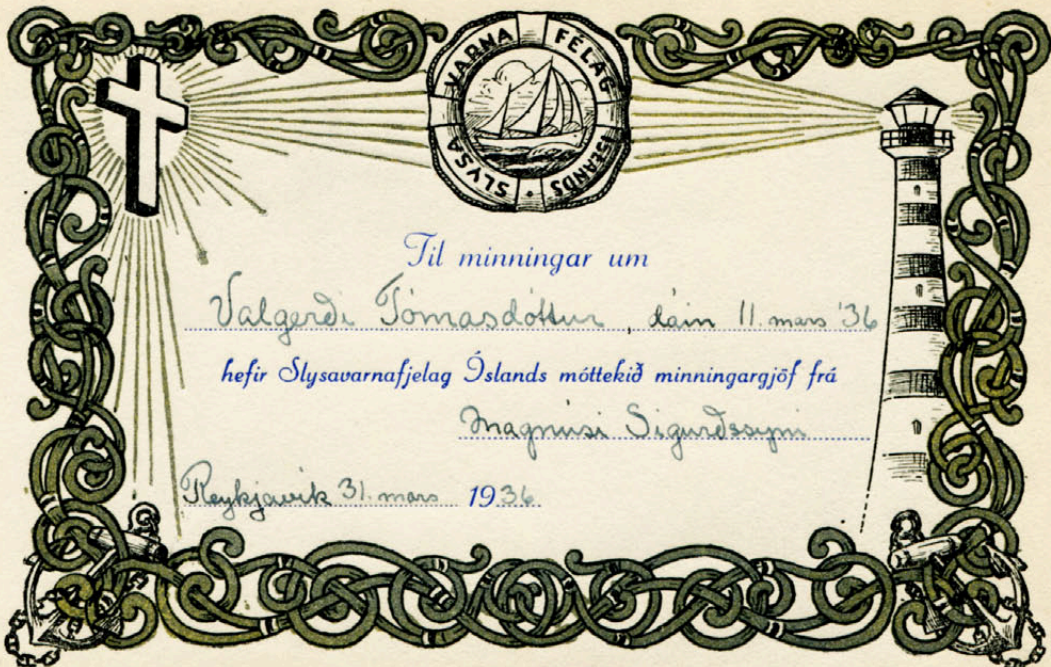 SLYSAVARNAFÉLAG ÍSLANDS
Til minningar um
Valgerði Tómasdóttur, dáin 11. mars '36
hefir Slysavarnafjelag Íslands móttekið minningargjöf frá
Magnúsi Sigurðssyni
Reykjavík 31. mars 1936